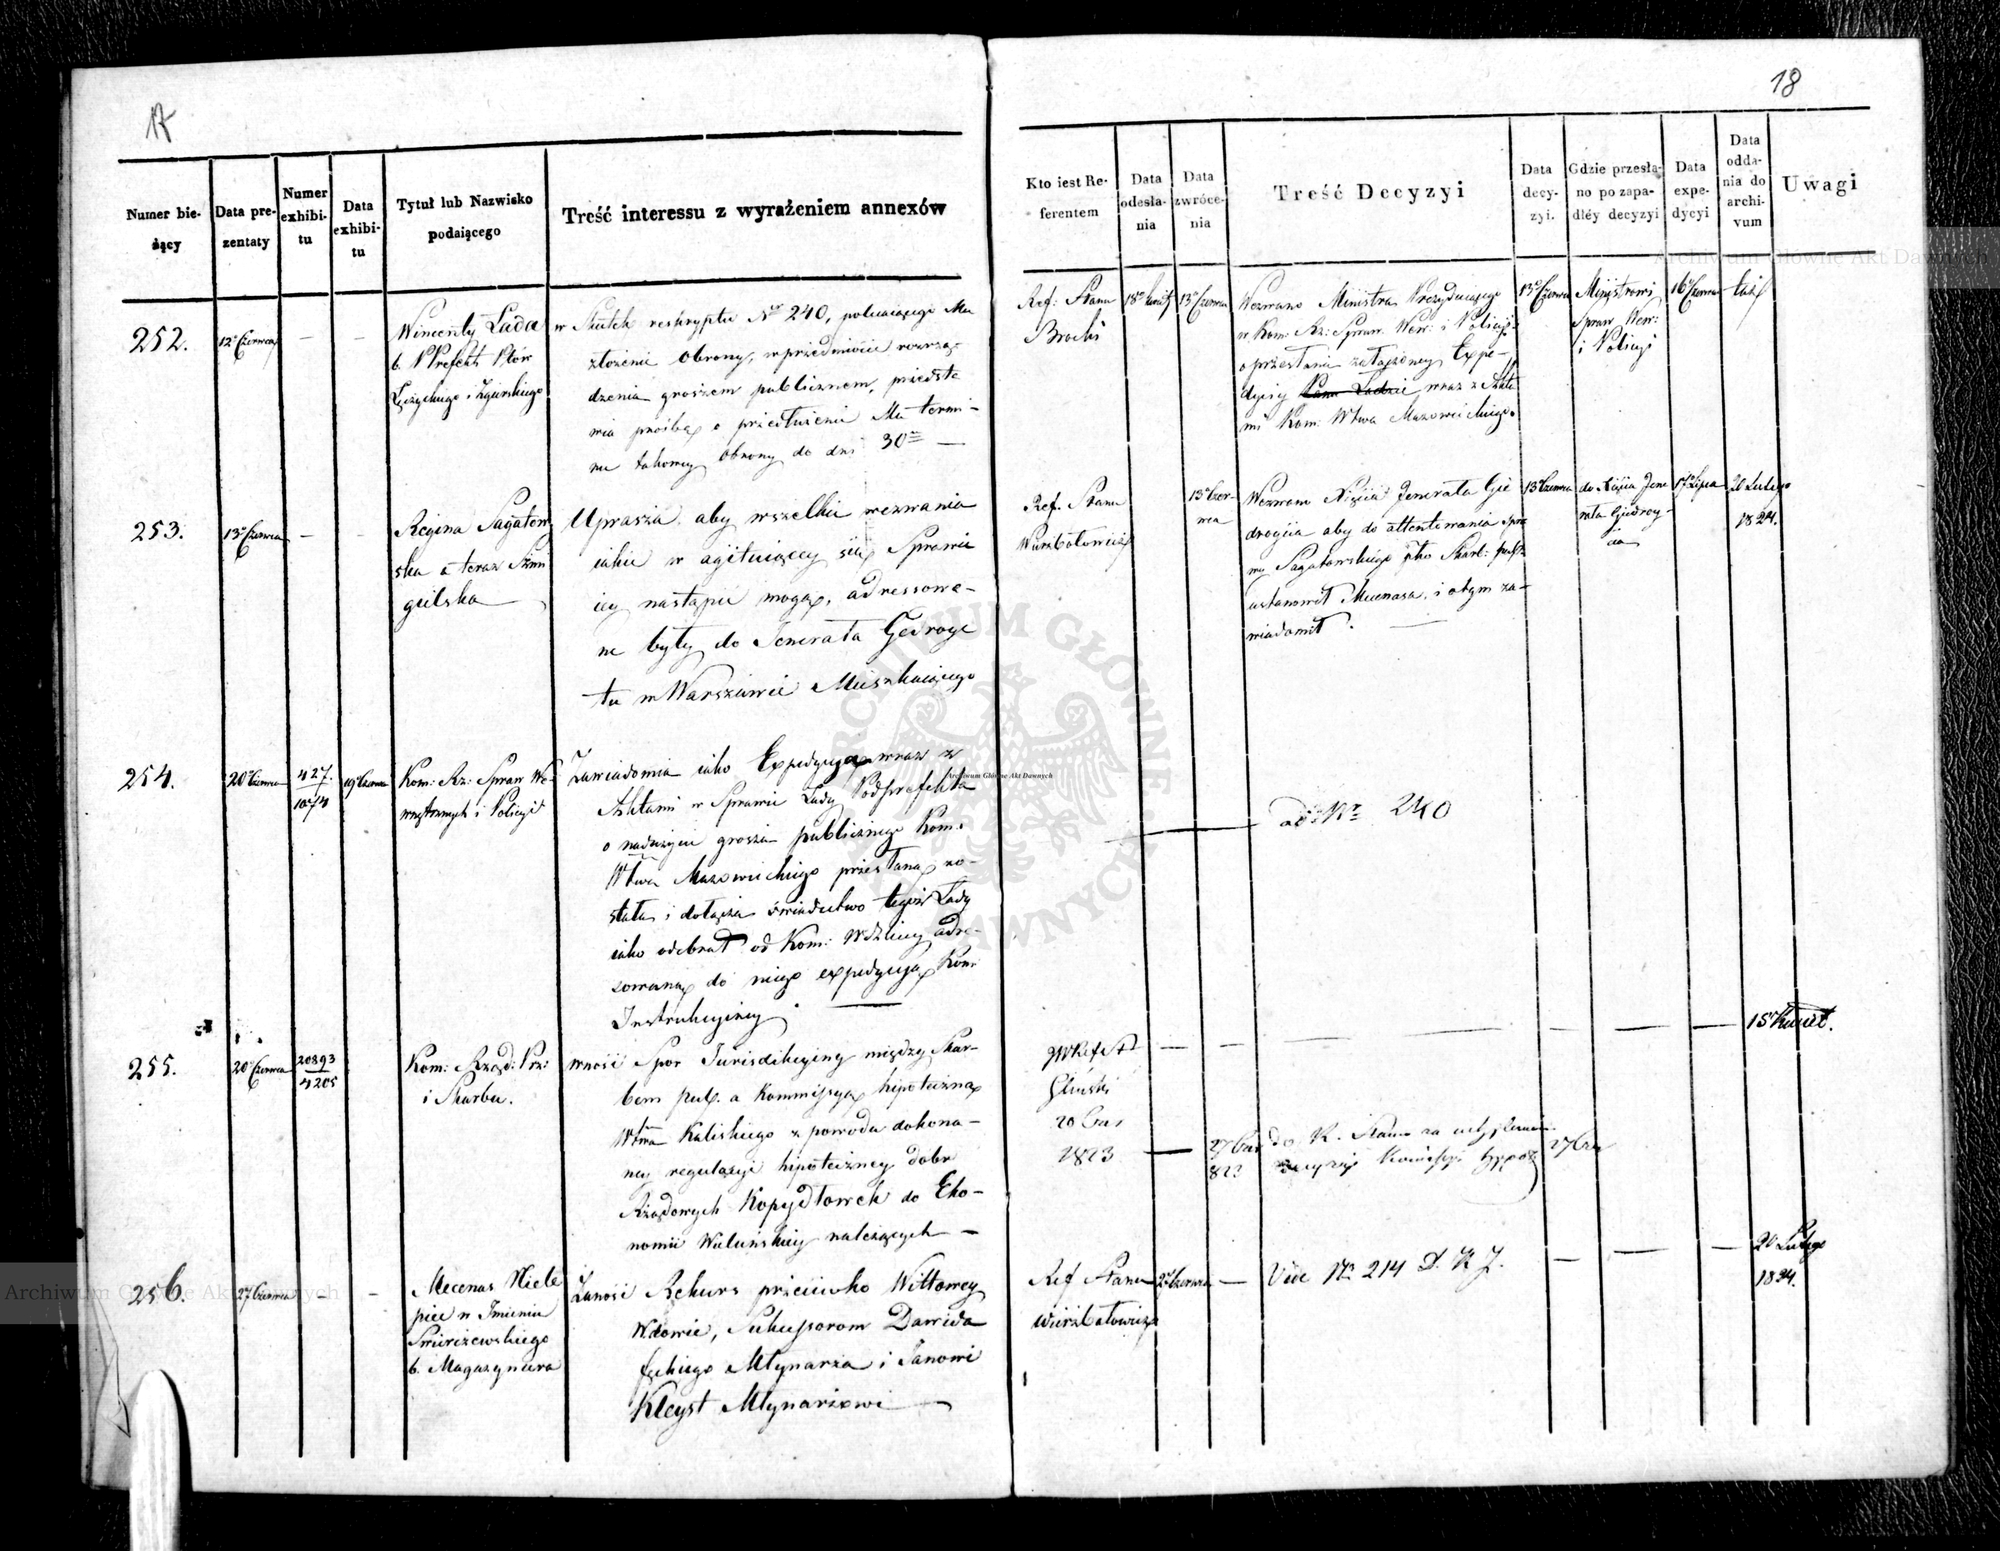 17
Numer bieżący
Data prezentaty
Numer exhibitu
Data exhibitu
Tytuł lub Nazwisko podaiącego
Treść interessu z wyrażeniem annexów
252.
12º Czerwca
Wincenty Łada
b. PPrefekt Pttów
Łęczyckiego i Zgierskiego
w Skutek reskryptu Nº 240, polecaiącego Mu
złożenie Obrony, w przedmiocie rozrzą-
dzenia groszem publicznem, przedsta
wia prośbę o przedłużenie Mu termi-
nu takowey Obrony do dni 30
253.
13º Czerwca
Regina Sagatow
ska a teraz Szmi
gielska
Uprasza aby wszelkie wezwania
iakie w agituiącey się Sprawie
iey nastąpić mogą, adressowa-
ne były do Jenerała Gedroyc
tu w Warszawie Mieszkaiącego
254.
20º Czerwca
427.
1074
19º Czerwca
Kom: Rz: Spraw We-
wnętrznych i Policyi
Zawiadomia iako Expedycya wraz z
Aktami w Sprawie Łady Podprefekta
o nadużycie grosza publicznego Kom:
Wtwa Mazowieckiego przesłaną zo-
stała i dołącza świadectwo tegoż Łady
iako odebrał od Kom: Wdzkiey adre-
sowaną do niego expedycyą Kom:
Instrukcyiney
255.
20º Czerwca
20893
4205
Kom: Rząd: Prz:
i Skarbu.
wnosi Spor Jurisdikcyiny między Skar-
bem pub. a Kommissyą hipoteczną
Wtwa Kaliskiego z powodu dokona-
ney regulacyi hipoteczney dobr
Rządowych Kopydłowek do Eko-
nomii Wieluńskiey należących
256.
27 Czerwca
Mecenas Niele
piec w Imieniu
Swierczewskiego
b. Magazyniera
Zanosi Rekurs przeciwko Wittowey
Wdowie, Sukcessorom Dawida
Młynarza i Janowi
Kleyst Młynarzowi
18
Kto iest Referentem
Data odesłania
Data zwrócenia
Treść Decyzyi
Data decyzyi.
Gdzie przesłano po zapadłéy decyzyi
Data expedycyi
Data oddania do archivum
Uwagi
Ref: Stanu
Brocki
13º Czerwca
Wezwano Ministra Prezyduiącego
w Kom: Rz: Spraw: Wew: i Policyi
o przesłanie załączoney Expe-
dycyi Panu Ładzie wraz z Akta
mi Kom: Wtwa Mazowieckiego.
13º Czerwca
Ministrowi
Spraw Wew:
i Policyi
16 Czerwca
Ref. Stanu
Wierzbołowicz
13º Czer-
wca
Wezwano Xięcia Jenerała Gie
droycia aby do attentowania spra
wy Sagatowskiego pko Skarb: publ:
ustanowił Mecenasa, i o tym za-
wiadomił.
13 Czerwca
do Xięcia Jene
rała Giedroy-
cia
17º Lipca
20 Lutego
1824.
ad Nr 240
Gliński
20 Czer
1823
27 Czer
823
27 Czer
15º Kwiet.
Ref Stanu
Wierzbołowicz
27 Czerwca
Vide Nº 214 D. K. J.
20 Lutego
1824.
Archiwum Główne Akt Dawnych
Archiwum Główne Akt Dawnych
Archiwum Główne Akt Dawnych
ARCHIWUM GŁÓWNE AKT DAWNYCH